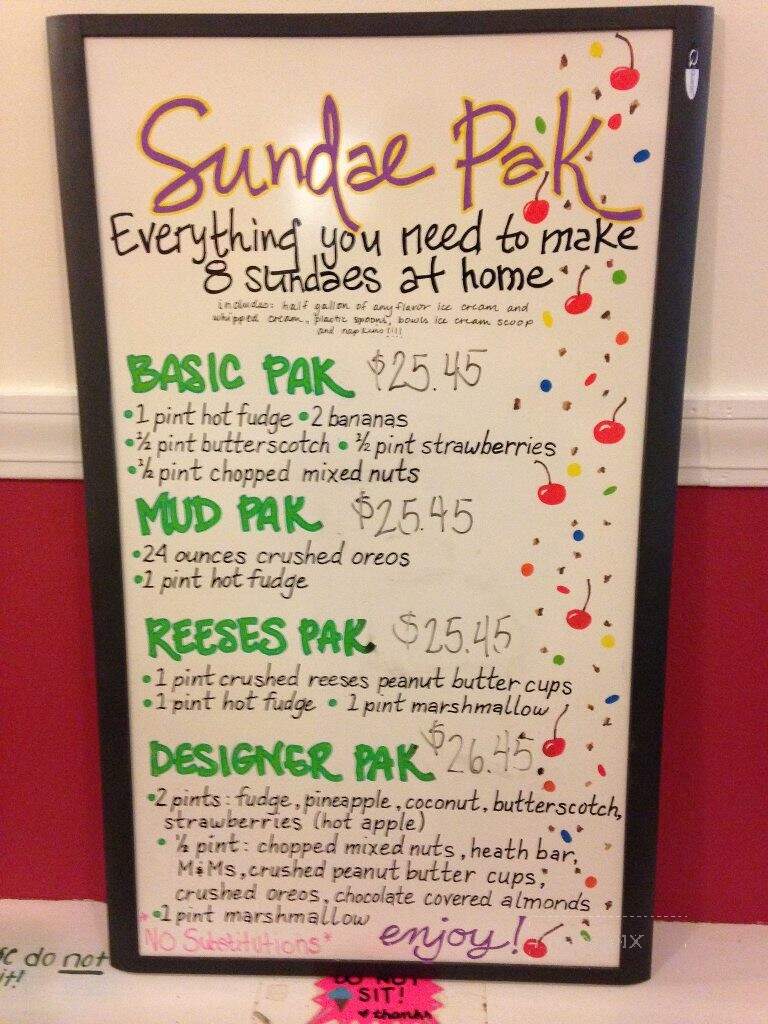 Sundae Pak
Everything you need to make
8 sundaes at home
includes: half gallon of any flavor ice cream and
whipped cream, plastic spoons, bowls ice cream scoop
and napkins!!!!
BASIC PAK $25.45
•1 pint hot fudge •2 bananas
•½ pint butterscotch • ½ pint strawberries
•½ pint chopped mixed nuts
MUD PAK $25.45
•24 ounces crushed oreos
•1 pint hot fudge
REESES PAK $25.45
•1 pint crushed reeses peanut butter cups
•1 pint hot fudge • 1 pint marshmallow
DESIGNER PAK $26.45
•2 pints: fudge, pineapple, coconut, butterscotch,
strawberries (hot apple)
• ½ pint: chopped mixed nuts, heath bar,
M&Ms, crushed peanut butter cups,
crushed oreos, chocolate covered almonds
•1 pint marshmallow
*NO Substitutions* enjoy!
do not
it!
DO NOT
SIT!
thanks